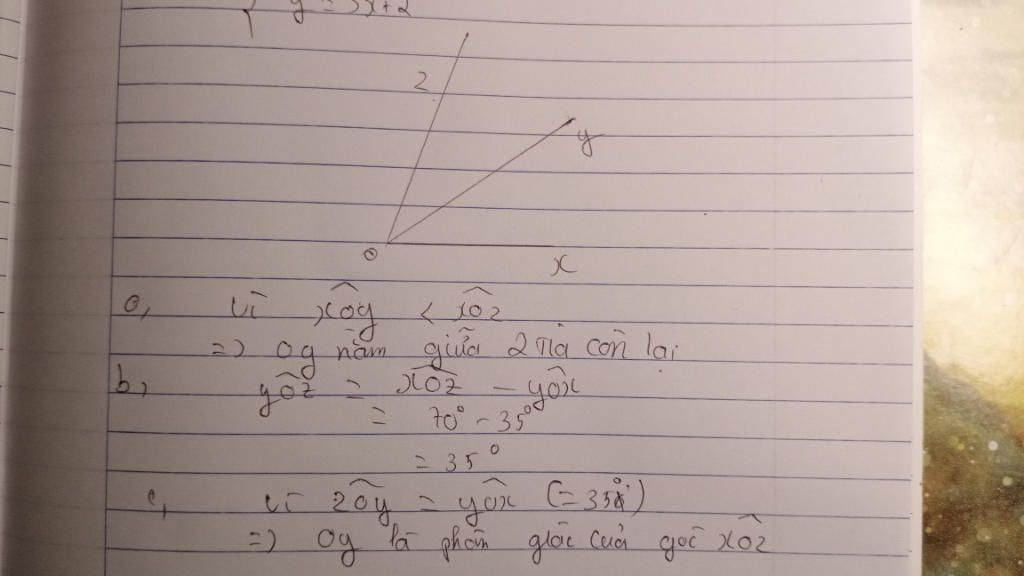 y = 3x+2
z
y
O
x
a, Vì xÔy < xÔz
=) Oy nằm giữa 2 tia còn lại
b, yÔz = xÔz - yÔx
= 70° - 35°
= 35°
c, Vì zÔy = yÔx (= 35°)
=) Oy là phân giác của góc xÔz